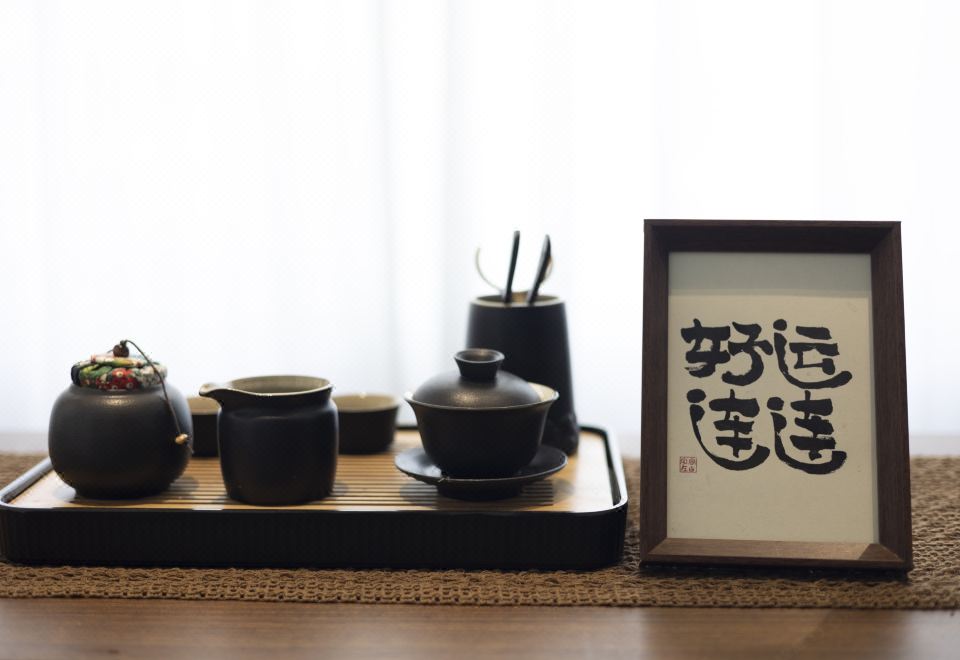 好运
连连